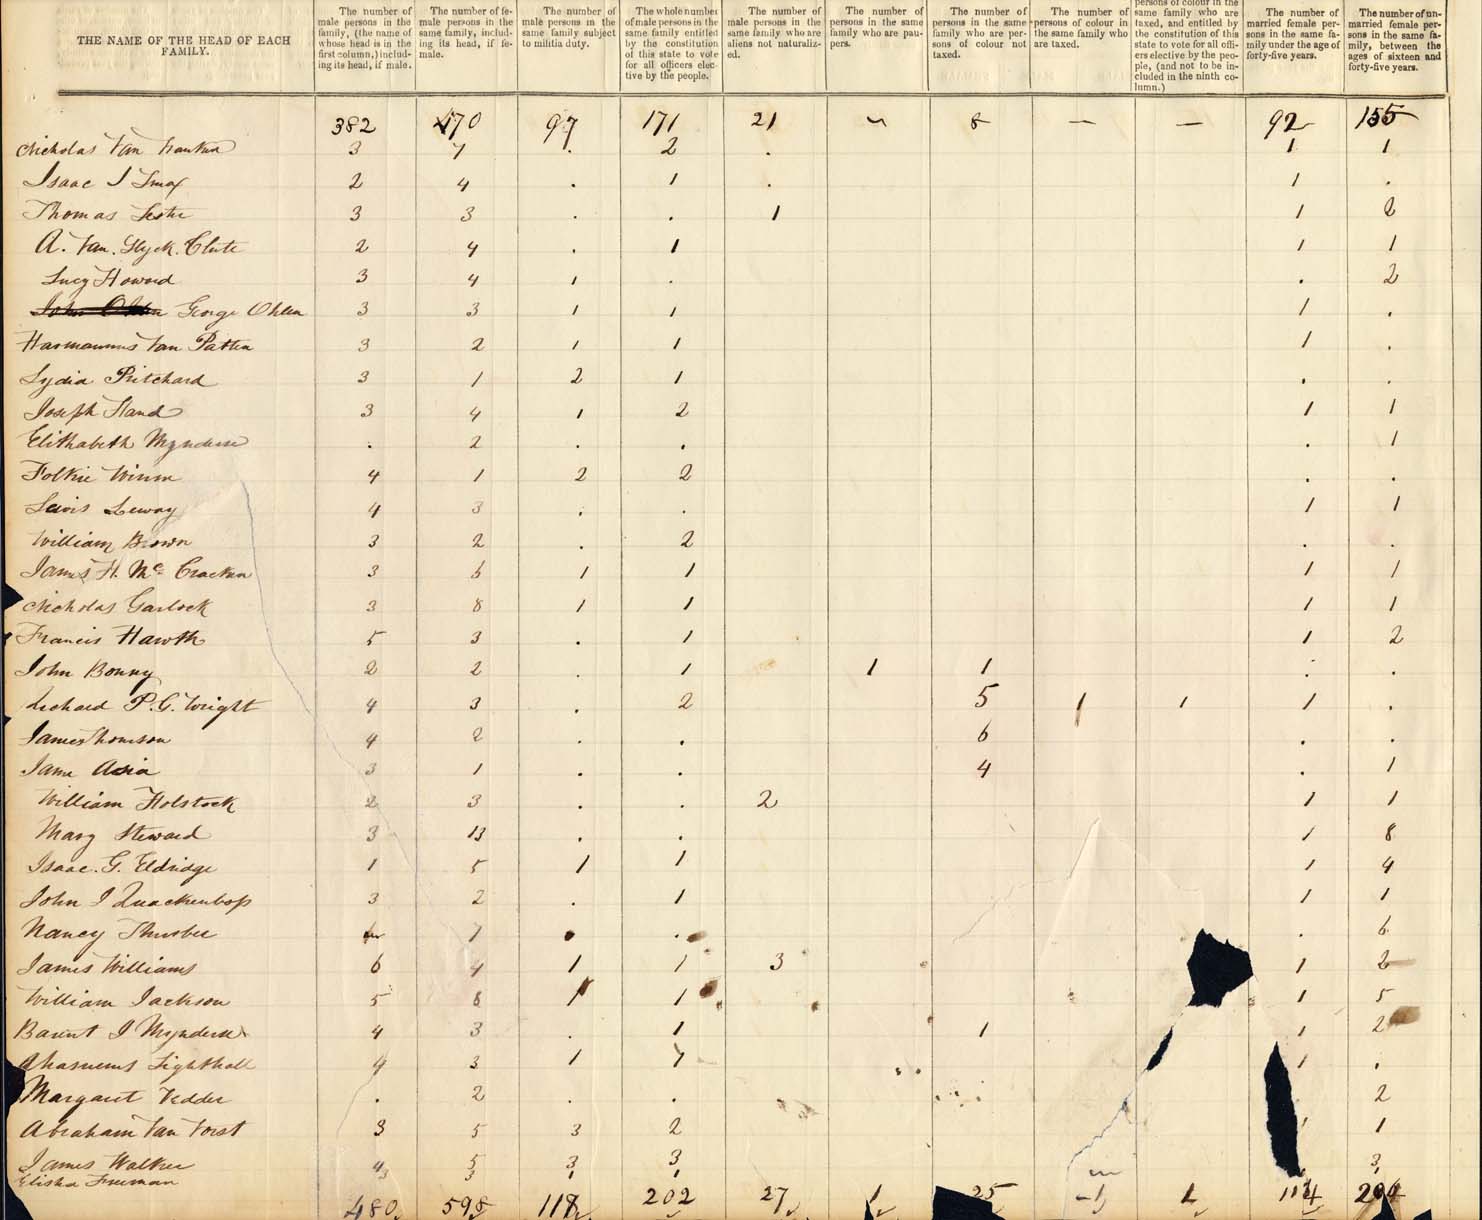 THE NAME OF THE HEAD OF EACH FAMILY.
The number of male persons in the family, (the name of whose head is in the first column,) including its head, if male.
The number of female persons in the same family, including its head, if female.
The number of male persons in the same family subject to militia duty.
The whole number of male persons in the same family entitled by the constitution of this state to vote for all officers elective by the people.
The number of male persons in the same family who are aliens not naturalized.
The number of persons in the same family who are paupers.
The number of persons in the same family who are persons of colour not taxed.
The number of persons of colour in the same family who are taxed.
persons of colour in the same family who are taxed, and entitled by the constitution of this state to vote for all officers elective by the people, (and not to be included in the ninth column.)
The number of married female persons in the same family under the age of forty-five years.
The number of unmarried female persons in the same family, between the ages of sixteen and forty-five years.
382 470 97 171 21 8 — — 92 155
Nicholas Van Franken 3 7 . 2 . 1 1
Isaac J 2 4 . 1 . 1 .
Thomas 3 3 . . 1 1 2
A. Van. Slyck. Clute 2 4 . 1 1 1
Lucy Howard 3 4 1 . . 2
George Ohlen 3 3 1 1 1 .
Harmanus Van Patten 3 2 1 1 1 .
Lydia Pritchard 3 1 2 1 . .
Joseph Hand 3 4 1 2 1 1
Elithabeth Mynderse . 2 . . . 1
Folkie 4 1 2 2 . .
Lewis Leway 4 3 . . 1 1
William Brown 3 2 . 2 . .
James H. Mc Cracken 3 6 1 1 1 1
Nicholas Garlock 3 8 1 1 1 1
Francis Hawth 5 3 . 1 1 2
John Bonny 2 2 . 1 1 1 . .
Richard P. G. Wright 4 3 . 2 5 1 1 1 .
James Thomson 4 2 . . 6 . .
Jane Asia 3 1 . . 4 . 1
William Holstock 2 3 . . 2 1 1
Mary Steward 3 13 . . 1 8
Isaac. G. Eldridge 1 5 1 1 1 4
John J Quackenboss 3 2 . 1 1 1
Nancy Thurber 7 . . . 6
James Williams 6 4 1 1 3 1 2
William Jackson 5 8 1 1 1 5
Barent J Mynderse 4 3 . 1 1 1 2
Lighthall 4 3 1 1 1 .
Margaret Vedder . 2 . . 2
Abraham Van Vorst 3 5 3 2 1 1
James Walker 4 5 3 3 3
Elisha Freeman 3 3 1 1
480 598 118 202 27 1 25 1 1 114 204